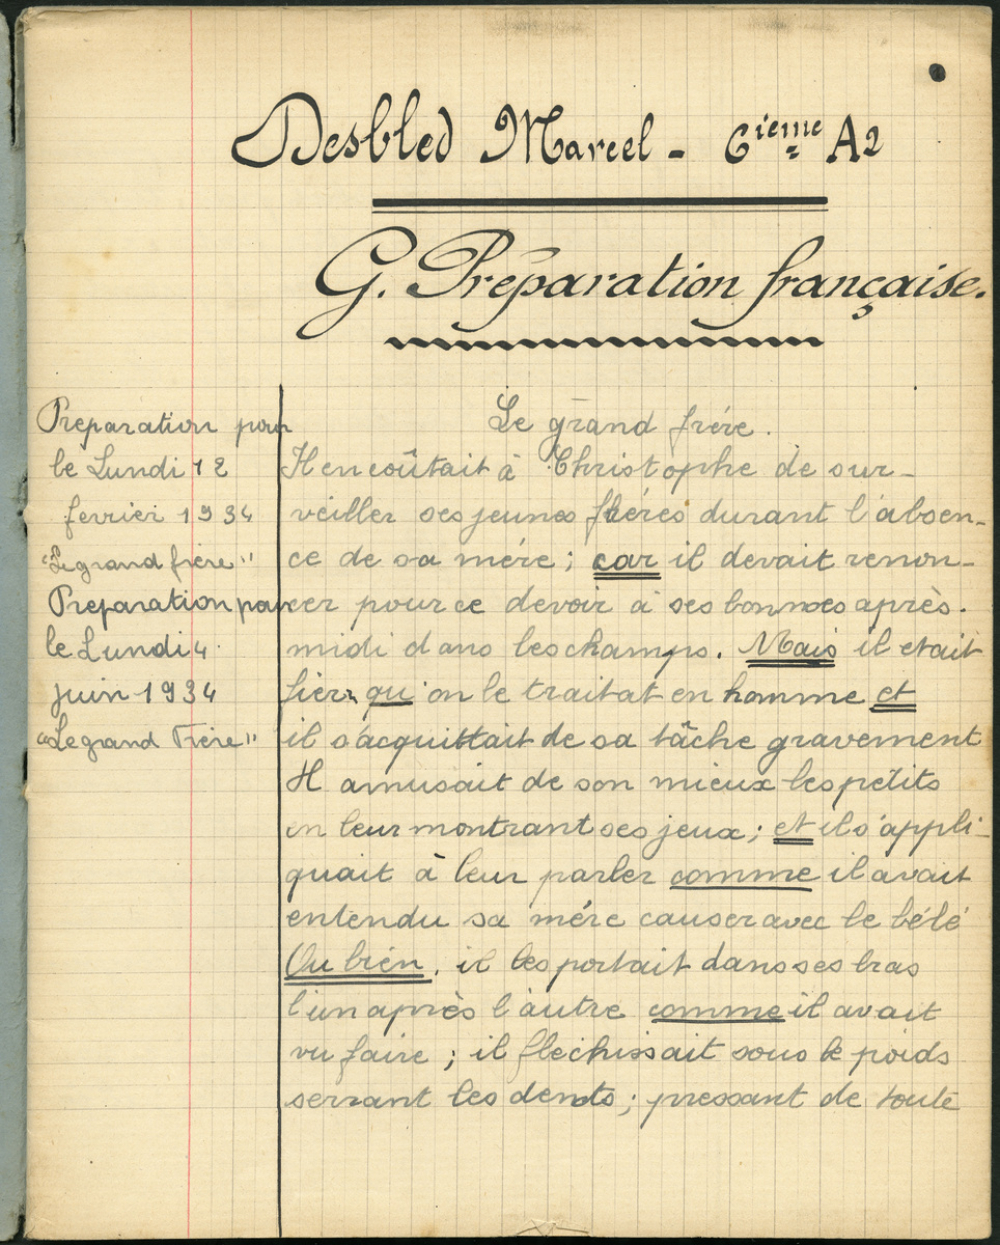 Desbled Marcel - 6ieme A2
G. Préparation française.
Preparation pour
le Lundi 12
fevrier 1934
"Le grand frère"
Preparation pour
le Lundi 4
juin 1934
"Le grand Frère"
Le grand frére.
Il en coûtait à Christophe de sur-
veiller ses jeunes fréres durant l'absen-
ce de sa mére ; car il devait renon-
cer pour ce devoir à ses bonnes après-
midi dans les champs. Mais il etait
fier qu'on le traitat en homme et
il s'acquittait de sa tâche gravement
Il amusait de son mieux les petits
en leur montrant ses jeux ; et il s'appli-
quait à leur parler comme il avait
entendu sa mére causer avec le bébé
Ou bien, il les portait dans ses bras
l'un après l'autre comme il avait
vu faire ; il flechissait sous le poids
serrant les dents ; pressant de toute